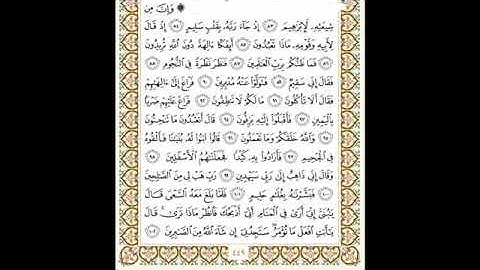 ۞ وَإِنَّ مِن
شِيعَتِهِۦ لَإِبْرَٰهِيمَ ٨٣ إِذْ جَآءَ رَبَّهُۥ بِقَلْبٍ سَلِيمٍ ٨٤ إِذْ قَالَ
لِأَبِيهِ وَقَوْمِهِۦ مَاذَا تَعْبُدُونَ ٨٥ أَئِفْكًا ءَالِهَةً دُونَ ٱللَّهِ تُرِيدُونَ
٨٦ فَمَا ظَنُّكُم بِرَبِّ ٱلْعَٰلَمِينَ ٨٧ فَنَظَرَ نَظْرَةً فِى ٱلنُّجُومِ ٨٨
فَقَالَ إِنِّى سَقِيمٌ ٨٩ فَتَوَلَّوْا۟ عَنْهُ مُدْبِرِينَ ٩٠ فَرَاغَ إِلَىٰٓ ءَالِهَتِهِمْ
فَقَالَ أَلَا تَأْكُلُونَ ٩١ مَا لَكُمْ لَا تَنطِقُونَ ٩٢ فَرَاغَ عَلَيْهِمْ ضَرْبًۢا
بِٱلْيَمِينِ ٩٣ فَأَقْبَلُوٓا۟ إِلَيْهِ يَزِفُّونَ ٩٤ قَالَ أَتَعْبُدُونَ مَا تَنْحِتُونَ
٩٥ وَٱللَّهُ خَلَقَكُمْ وَمَا تَعْمَلُونَ ٩٦ قَالُوا۟ ٱبْنُوا۟ لَهُۥ بُنْيَٰنًا فَأَلْقُوهُ
فِى ٱلْجَحِيمِ ٩٧ فَأَرَادُوا۟ بِهِۦ كَيْدًا فَجَعَلْنَٰهُمُ ٱلْأَسْفَلِينَ ٩٨
وَقَالَ إِنِّى ذَاهِبٌ إِلَىٰ رَبِّى سَيَهْدِينِ ٩٩ رَبِّ هَبْ لِى مِنَ ٱلصَّٰلِحِينَ
١٠٠ فَبَشَّرْنَٰهُ بِغُلَٰمٍ حَلِيمٍ ١٠١ فَلَمَّا بَلَغَ مَعَهُ ٱلسَّعْىَ قَالَ
يَٰبُنَىَّ إِنِّىٓ أَرَىٰ فِى ٱلْمَنَامِ أَنِّىٓ أَذْبَحُكَ فَٱنظُرْ مَاذَا تَرَىٰ قَالَ
يَٰٓأَبَتِ ٱفْعَلْ مَا تُؤْمَرُ سَتَجِدُنِىٓ إِن شَآءَ ٱللَّهُ مِنَ ٱلصَّٰبِرِينَ ١٠٢
٤٤٩